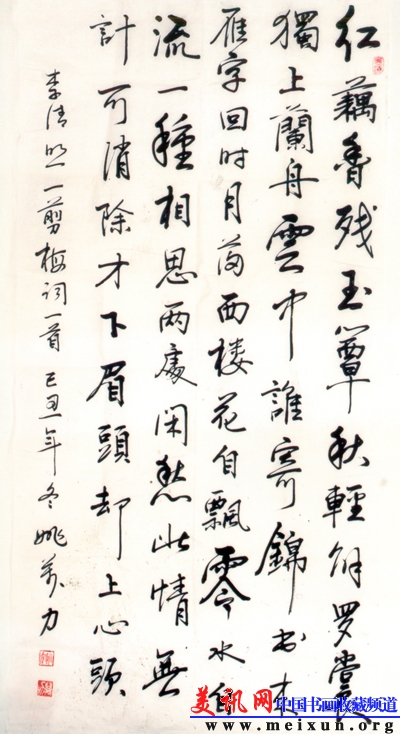 红藕香残玉簟秋輕解罗裳
獨上蘭舟雲中誰寄錦书来
雁字回时月满西楼花自飄零水自
流一種相思两處闲愁此情無
計可消除才下眉頭却上心頭
李清照一剪梅词一首己丑年冬姚萬力
美讯网中国书画收藏频道
www.meixun.org